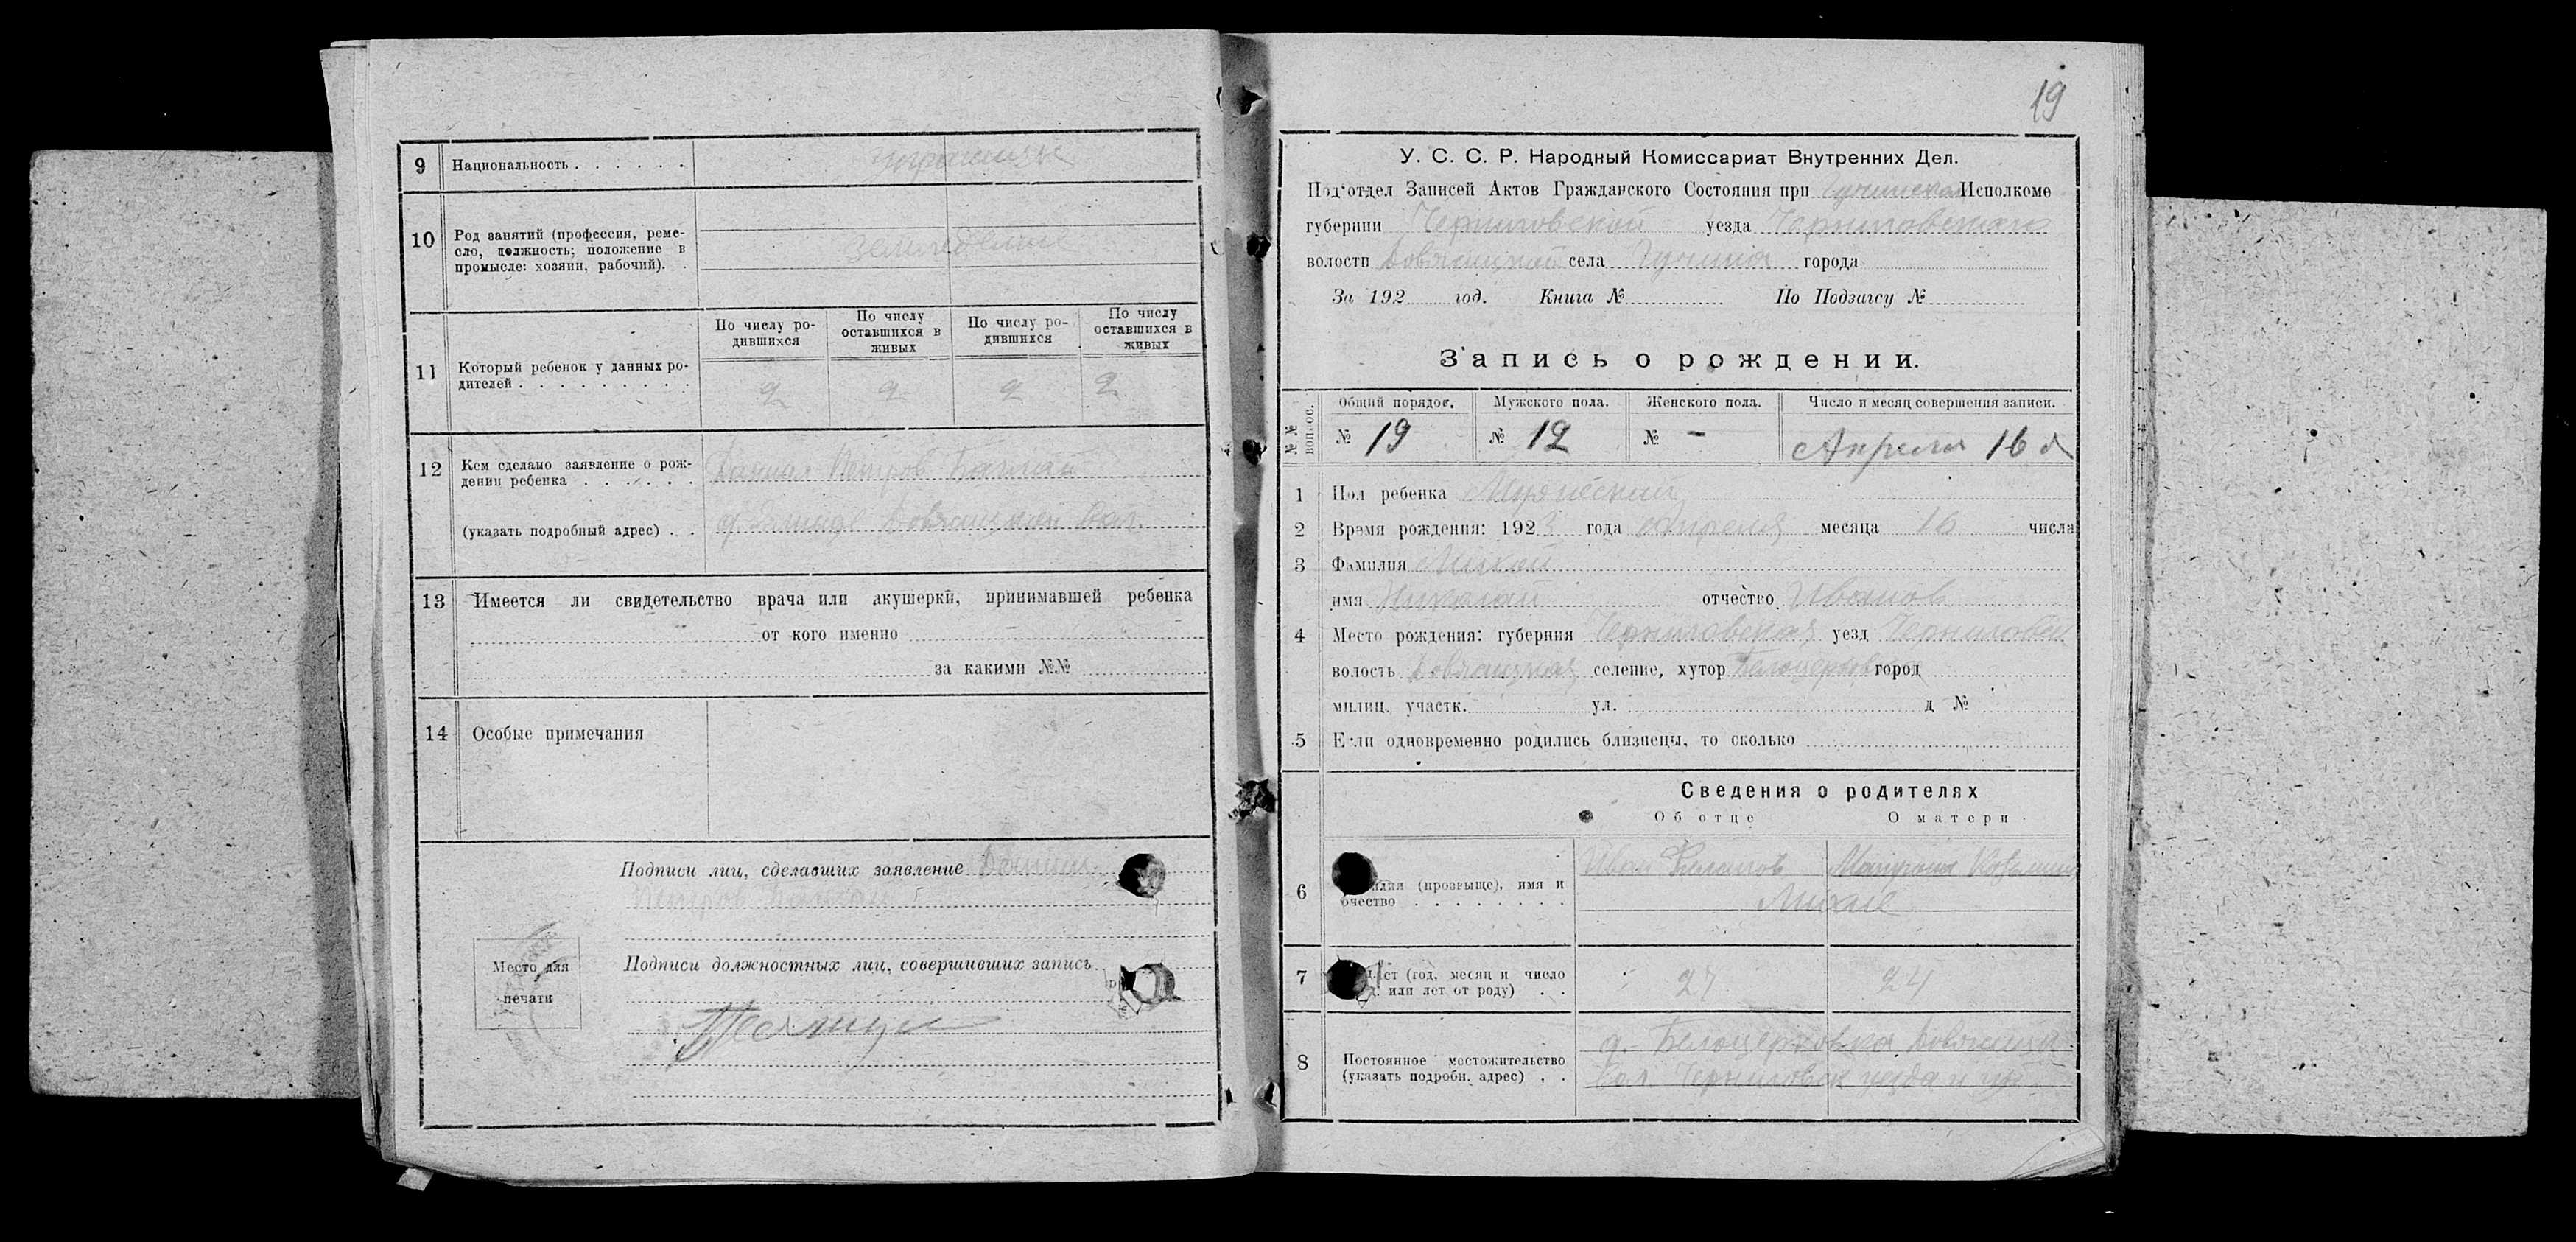 9 Национальность . . . . . . украинцы
10 Род занятий (профессия, реме-
сло, должность; положение в
промысле: хозяин, рабочий). .
земледелие
По числу ро-
дившихся
По числу
оставшихся в
живых
По числу ро-
дившихся
По числу
оставшихся в
живых
11 Который ребенок у данных ро-
дителей . . . . . . . . .
2 2 2 2
12 Кем сделано заявление о рож-
дении ребенка . . . . . .
Даниил Петров
(указать подробный адрес) . .
13 Имеется ли свидетельство врача или акушерки, принимавшей ребенка
от кого именно
за какими №№
14 Особые примечания
Подписи лиц, сделавших заявление Даниил
Петров
Место для
печати
Подписи должностных лиц, совершивших запись
19
У. С. С. Р. Народный Комиссариат Внутренних Дел.
Под'отдел Записей Актов Гражданского Состояния при Исполкоме
губернии Черниговской уезда Черниговского
волости села города
За 192 год. Книга № По Подзагсу №
Запись о рождении.
№№ вопрос.
Общий порядок.
Мужского пола.
Женского пола.
Число и месяц совершения записи.
№ 19
№ 12
№ -
Апреля 16 д
1 Пол ребенка Мужеский
2 Время рождения: 1923 года Апреля месяца 16 числа
3 Фамилия
имя Николай отчество Иванов
4 Место рождения: губерния Черниговская уезд
волость селение, хутор город
милиц. участк. ул. д №
5 Если одновременно родились близнецы, то сколько
Сведения о родителях
Об отце
О матери
6 (прозвыще), имя и
очество . . . . . . . .
Иван
7 (год, месяц и число
или лет от роду) . .
27 24
8 Постоянное местожительство
(указать подробн. адрес) . .
д. Белоцерковка
Вол. Черниговск уезда и губ.